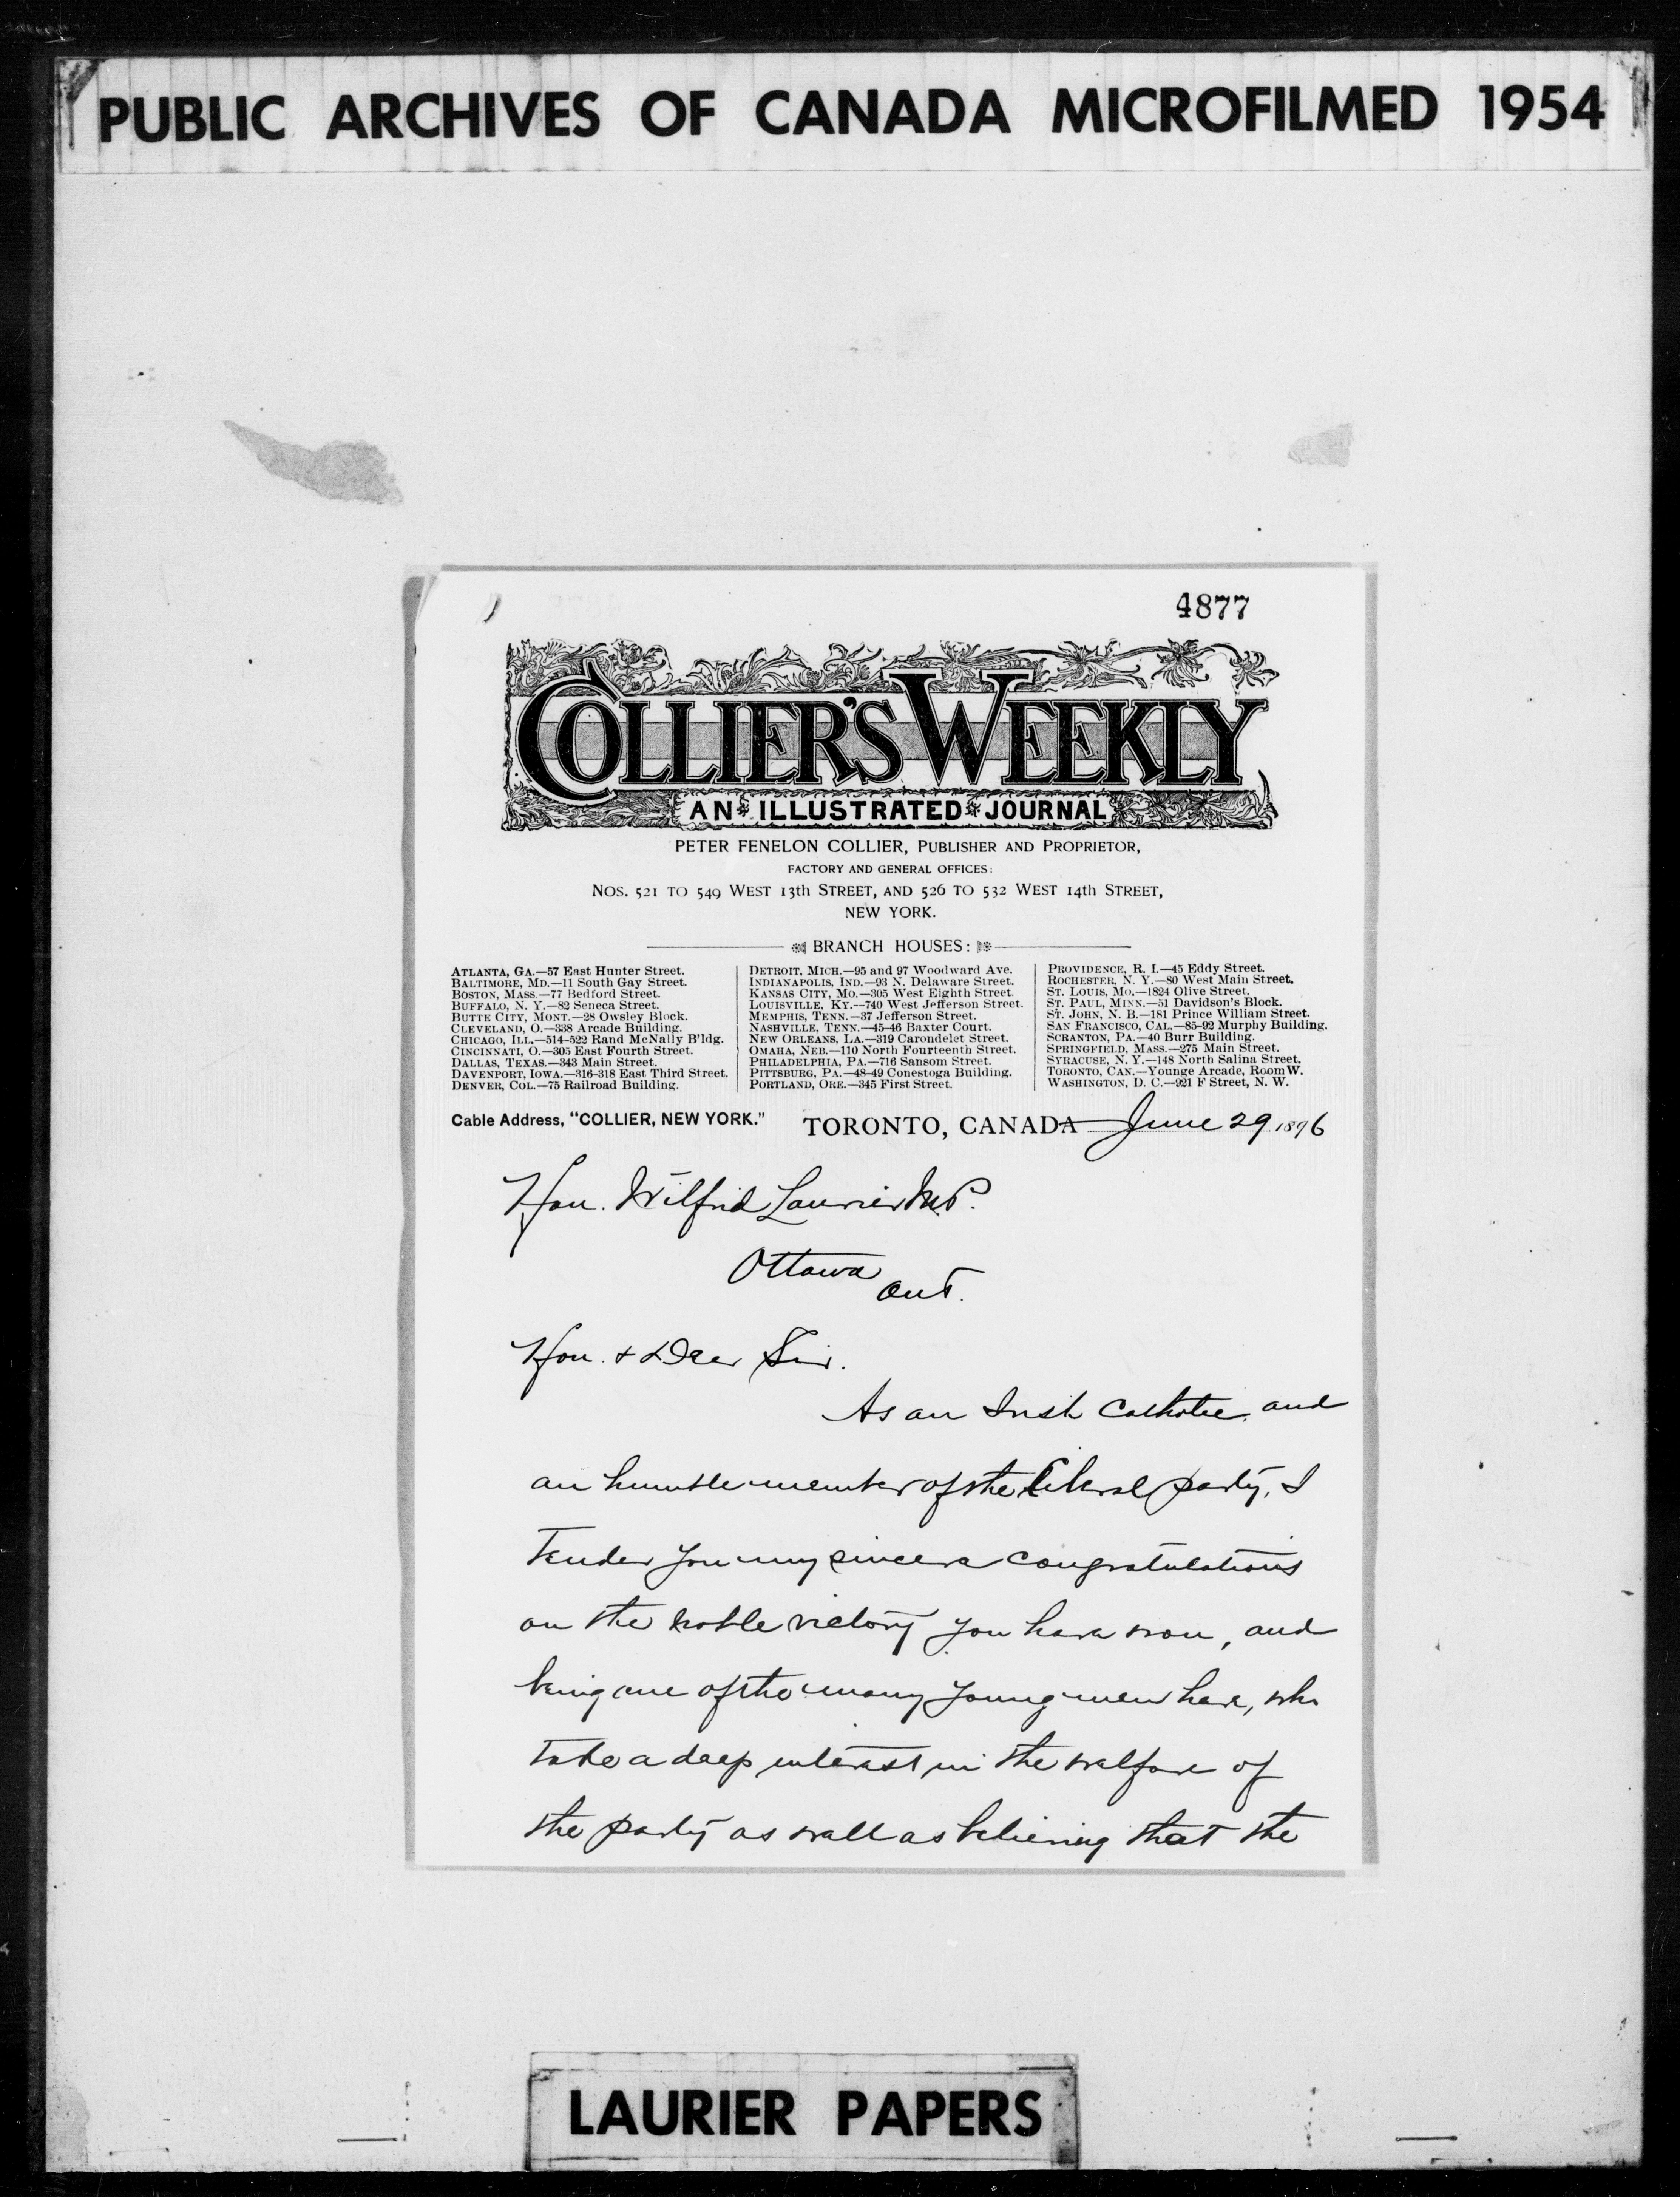 PUBLIC ARCHIVES OF CANADA MICROFILMED 1954
4877
COLLIER'S WEEKLY
AN ILLUSTRATED JOURNAL
PETER FENELON COLLIER, PUBLISHER AND PROPRIETOR,
FACTORY AND GENERAL OFFICES:
NOS. 521 TO 549 WEST 13th STREET, AND 526 TO 532 WEST 14th STREET,
NEW YORK.
BRANCH HOUSES:
ATLANTA, GA.—57 East Hunter Street.
BALTIMORE, MD.—11 South Gay Street.
BOSTON, MASS.—77 Bedford Street.
BUFFALO, N. Y.—82 Seneca Street.
BUTTE CITY, MONT.—28 Owsley Block.
CLEVELAND, O.—338 Arcade Building.
CHICAGO, ILL.—514-522 Rand McNally B'ldg.
CINCINNATI, O.—305 East Fourth Street.
DALLAS, TEXAS.—343 Main Street.
DAVENPORT, IOWA.—316-318 East Third Street.
DENVER, COL.—75 Railroad Building.
DETROIT, MICH.—95 and 97 Woodward Ave.
INDIANAPOLIS, IND.—93 N. Delaware Street.
KANSAS CITY, MO.—305 West Eighth Street.
LOUISVILLE, KY.—740 West Jefferson Street.
MEMPHIS, TENN.—37 Jefferson Street.
NASHVILLE, TENN.—45-46 Baxter Court.
NEW ORLEANS, LA.—319 Carondelet Street.
OMAHA, NEB.—110 North Fourteenth Street.
PHILADELPHIA, PA.—716 Sansom Street.
PITTSBURG, PA.—48-49 Conestoga Building.
PORTLAND, ORE.—345 First Street.
PROVIDENCE, R. I.—45 Eddy Street.
ROCHESTER, N. Y.—80 West Main Street.
ST. LOUIS, MO.—1824 Olive Street.
ST. PAUL, MINN.—51 Davidson's Block.
ST. JOHN, N. B.—181 Prince William Street.
SAN FRANCISCO, CAL.—85-92 Murphy Building.
SCRANTON, PA.—40 Burr Building.
SPRINGFIELD, MASS.—275 Main Street.
SYRACUSE, N. Y.—148 North Salina Street.
TORONTO, CAN.—Younge Arcade, Room W.
WASHINGTON, D. C.—921 F Street, N. W.
Cable Address, "COLLIER, NEW YORK." TORONTO, CANADA June 29 1896
Hon. Wilfrid Laurier M.P.
Ottawa
Ont.
Hon. & Dear Sir.
As an Irish Catholic, and
an humble member of the Liberal party, I
tender you my sincere congratulations
on the noble victory you have won, and
being one of the many young men here, who
take a deep interest in the welfare of
the party as well as believing that the
LAURIER PAPERS